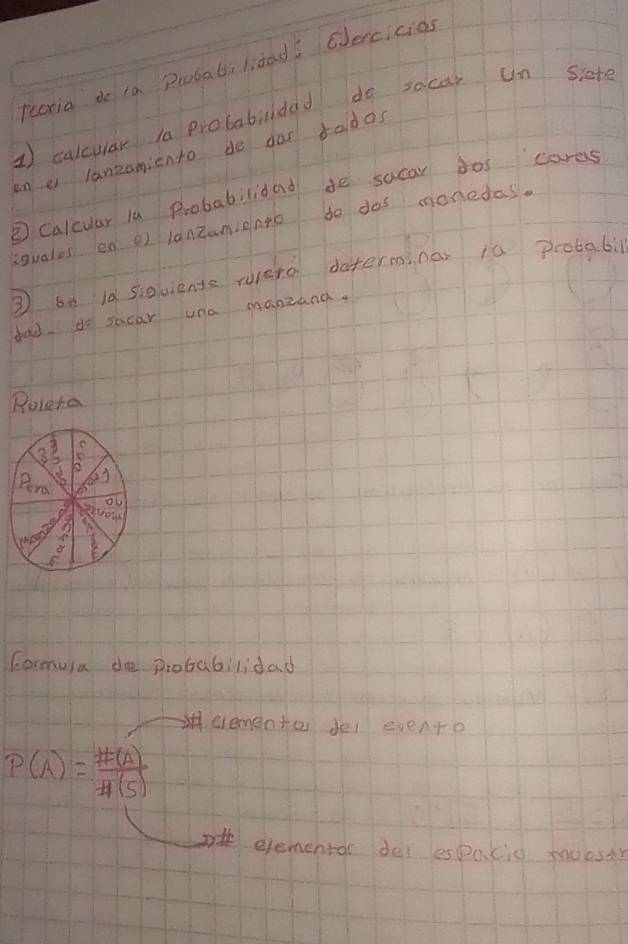 Teoria de la Probabilidad: Ejercicios
1) calcular la Probabilidad de sacar un siete
en el lanzamiento de dos dados
2) Calcular la Probabilidad de sacar dos caras
iguales en el lanzamiento de dos monedas.
3) En la siguiente ruleta determinar la probabili
dad de sacar una manzana.
Ruleta
Pera
Manzana
Formula de probabilidad
# elementos del evento
P(A) = #(A)
#(S)
# elementos del espacio muestr